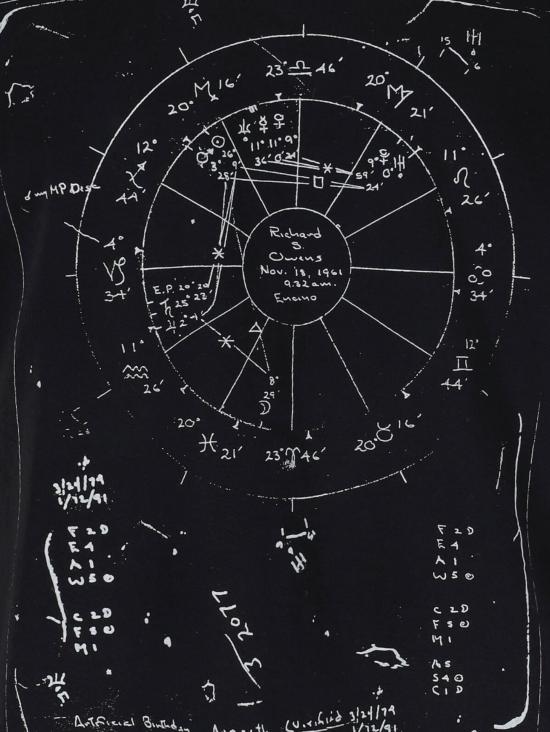 23° ♎ 46'
20° ♏ 16'
20° ♍ 21'
15
6
12° ♐ 44'
11° ♌ 26'
4° ♑ 34'
4° ♋ 34'
11° ♒ 26'
12° ♊ 44'
20° ♓ 21'
23° ♈ 46'
20° ♉ 16'
11° 11° 9°
59'
24'
Richard
S.
Owens
Nov. 18, 1961
9:32 a.m.
Encino
E.P. 20° 20'
25° 22'
8°
29'
☽
3/24/79
1/72/91
F 2 D
E 4
A 1
W 5 ⊙
C 2 D
F 5 ⊙
M 1
F 2 D
E 4
A 1
W 5 ⊙
C 2 D
F 5 ⊙
M 1
A 5
S 4 ⊙
C 1 D
3 2077
Artificial Birthday
3/24/79
1/72/91